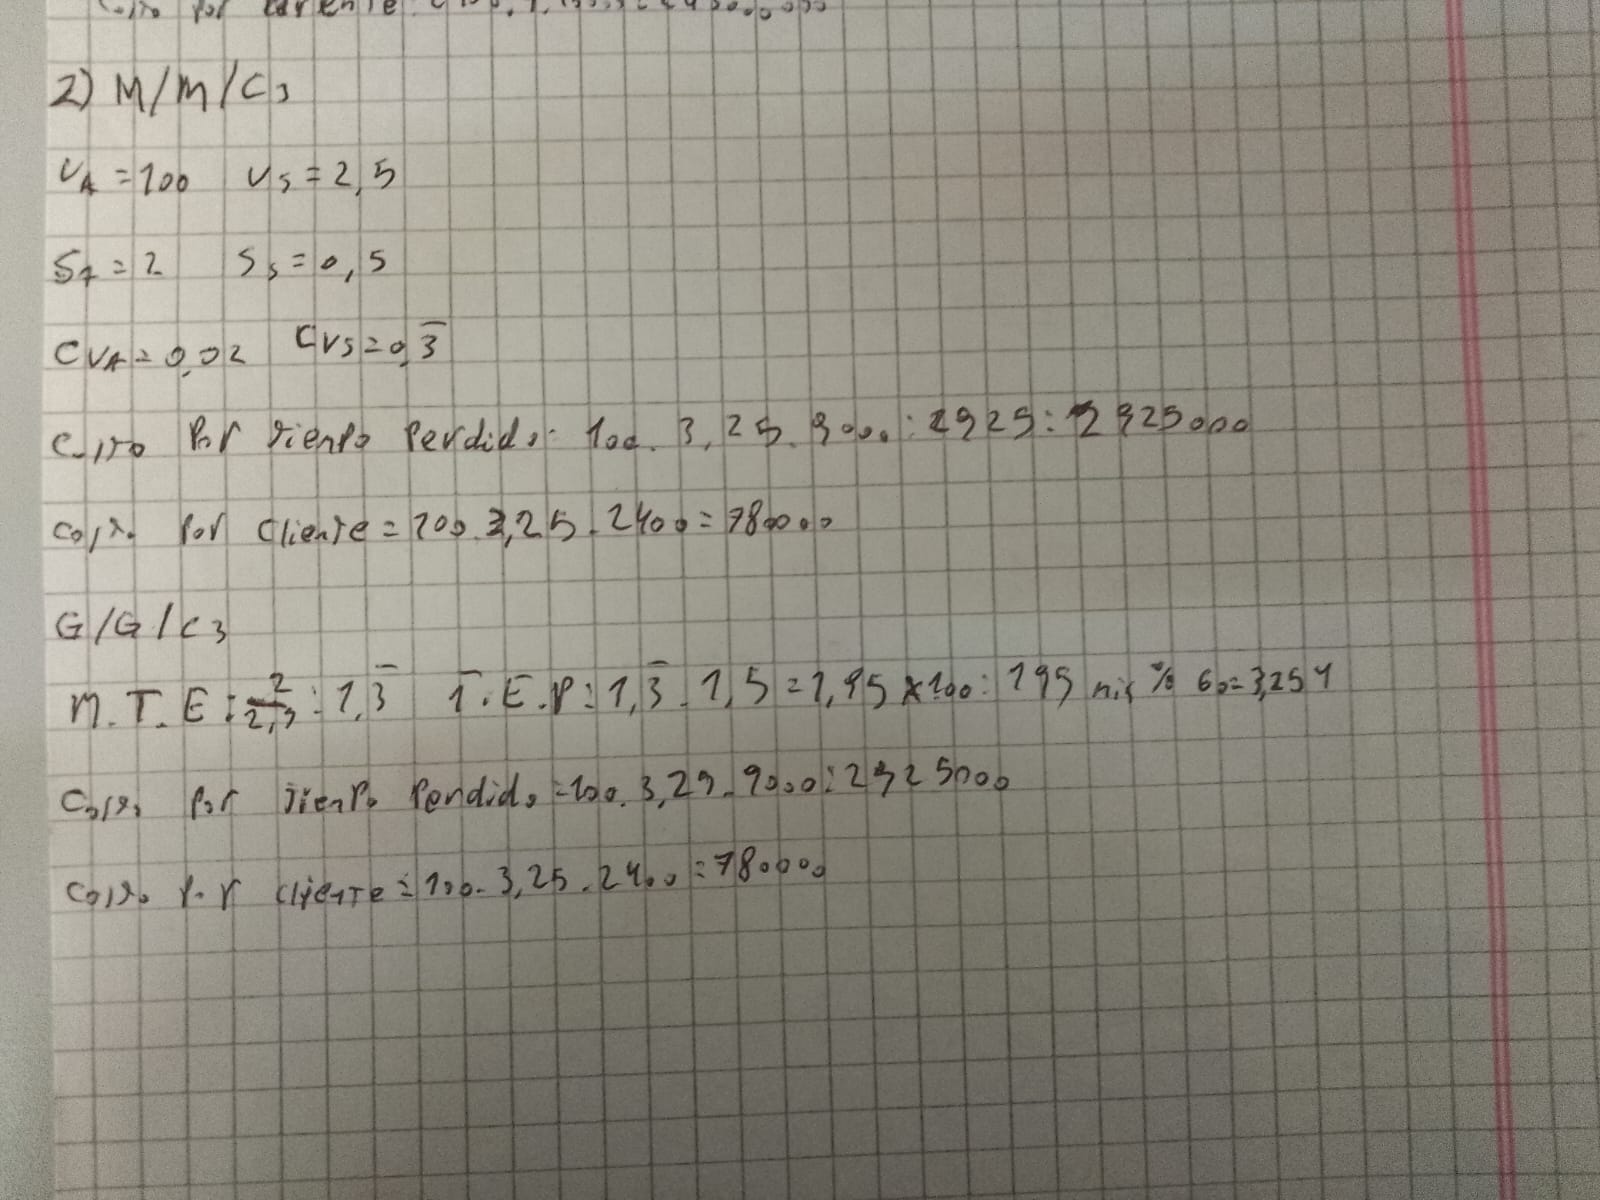 Costo por cliente
2) M/M/C3
UA=100 US=2,5
SA=2 Ss=0,5
CVA=0,02 CVS=0,3̅
Costo Por Tiempo Perdido: 100. 3,25. 9000: 2925: 2925000
Costo Por Cliente = 100.3,25.2400=780000
G/G/C3
M.T.E: : 1,3̅ T.E.P: 1,3̅. 1,5=1,95 x100: 195 min % 60=3,25
Costo Por Tiempo Perdido =100. 3,25. 9000: 2925000
Costo Por cliente = 100. 3,25. 2400=780000